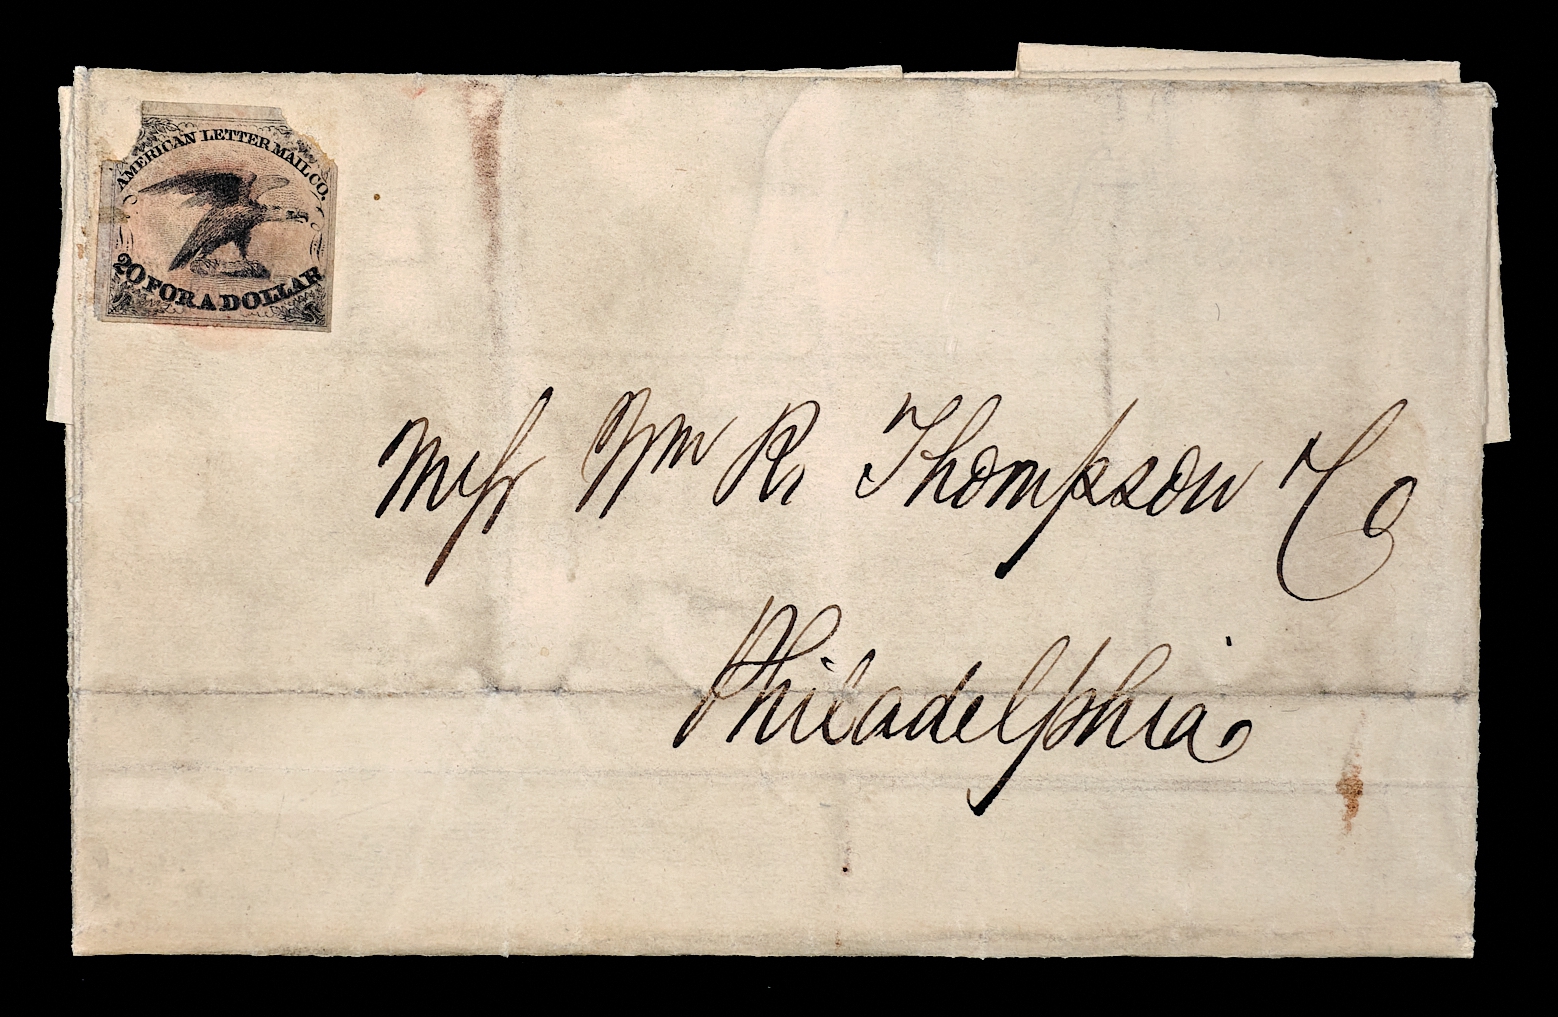 AMERICAN LETTER MAIL CO.
20 FOR A DOLLAR
Messr Wm R. Thompson & Co
Philadelphia